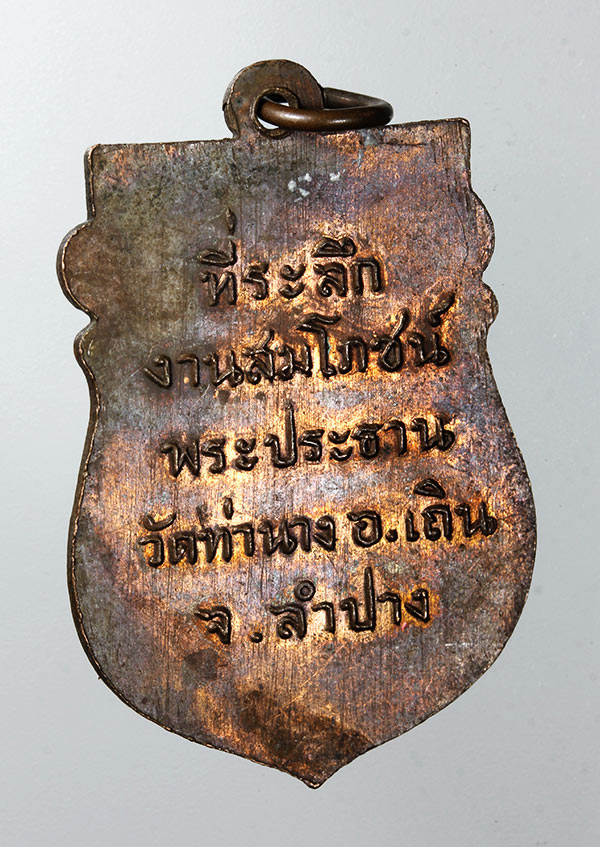 ที่ระลึก
งานสมโภชน์
พระประธาน
วัดท่านาง อ.เถิน
จ.ลำปาง